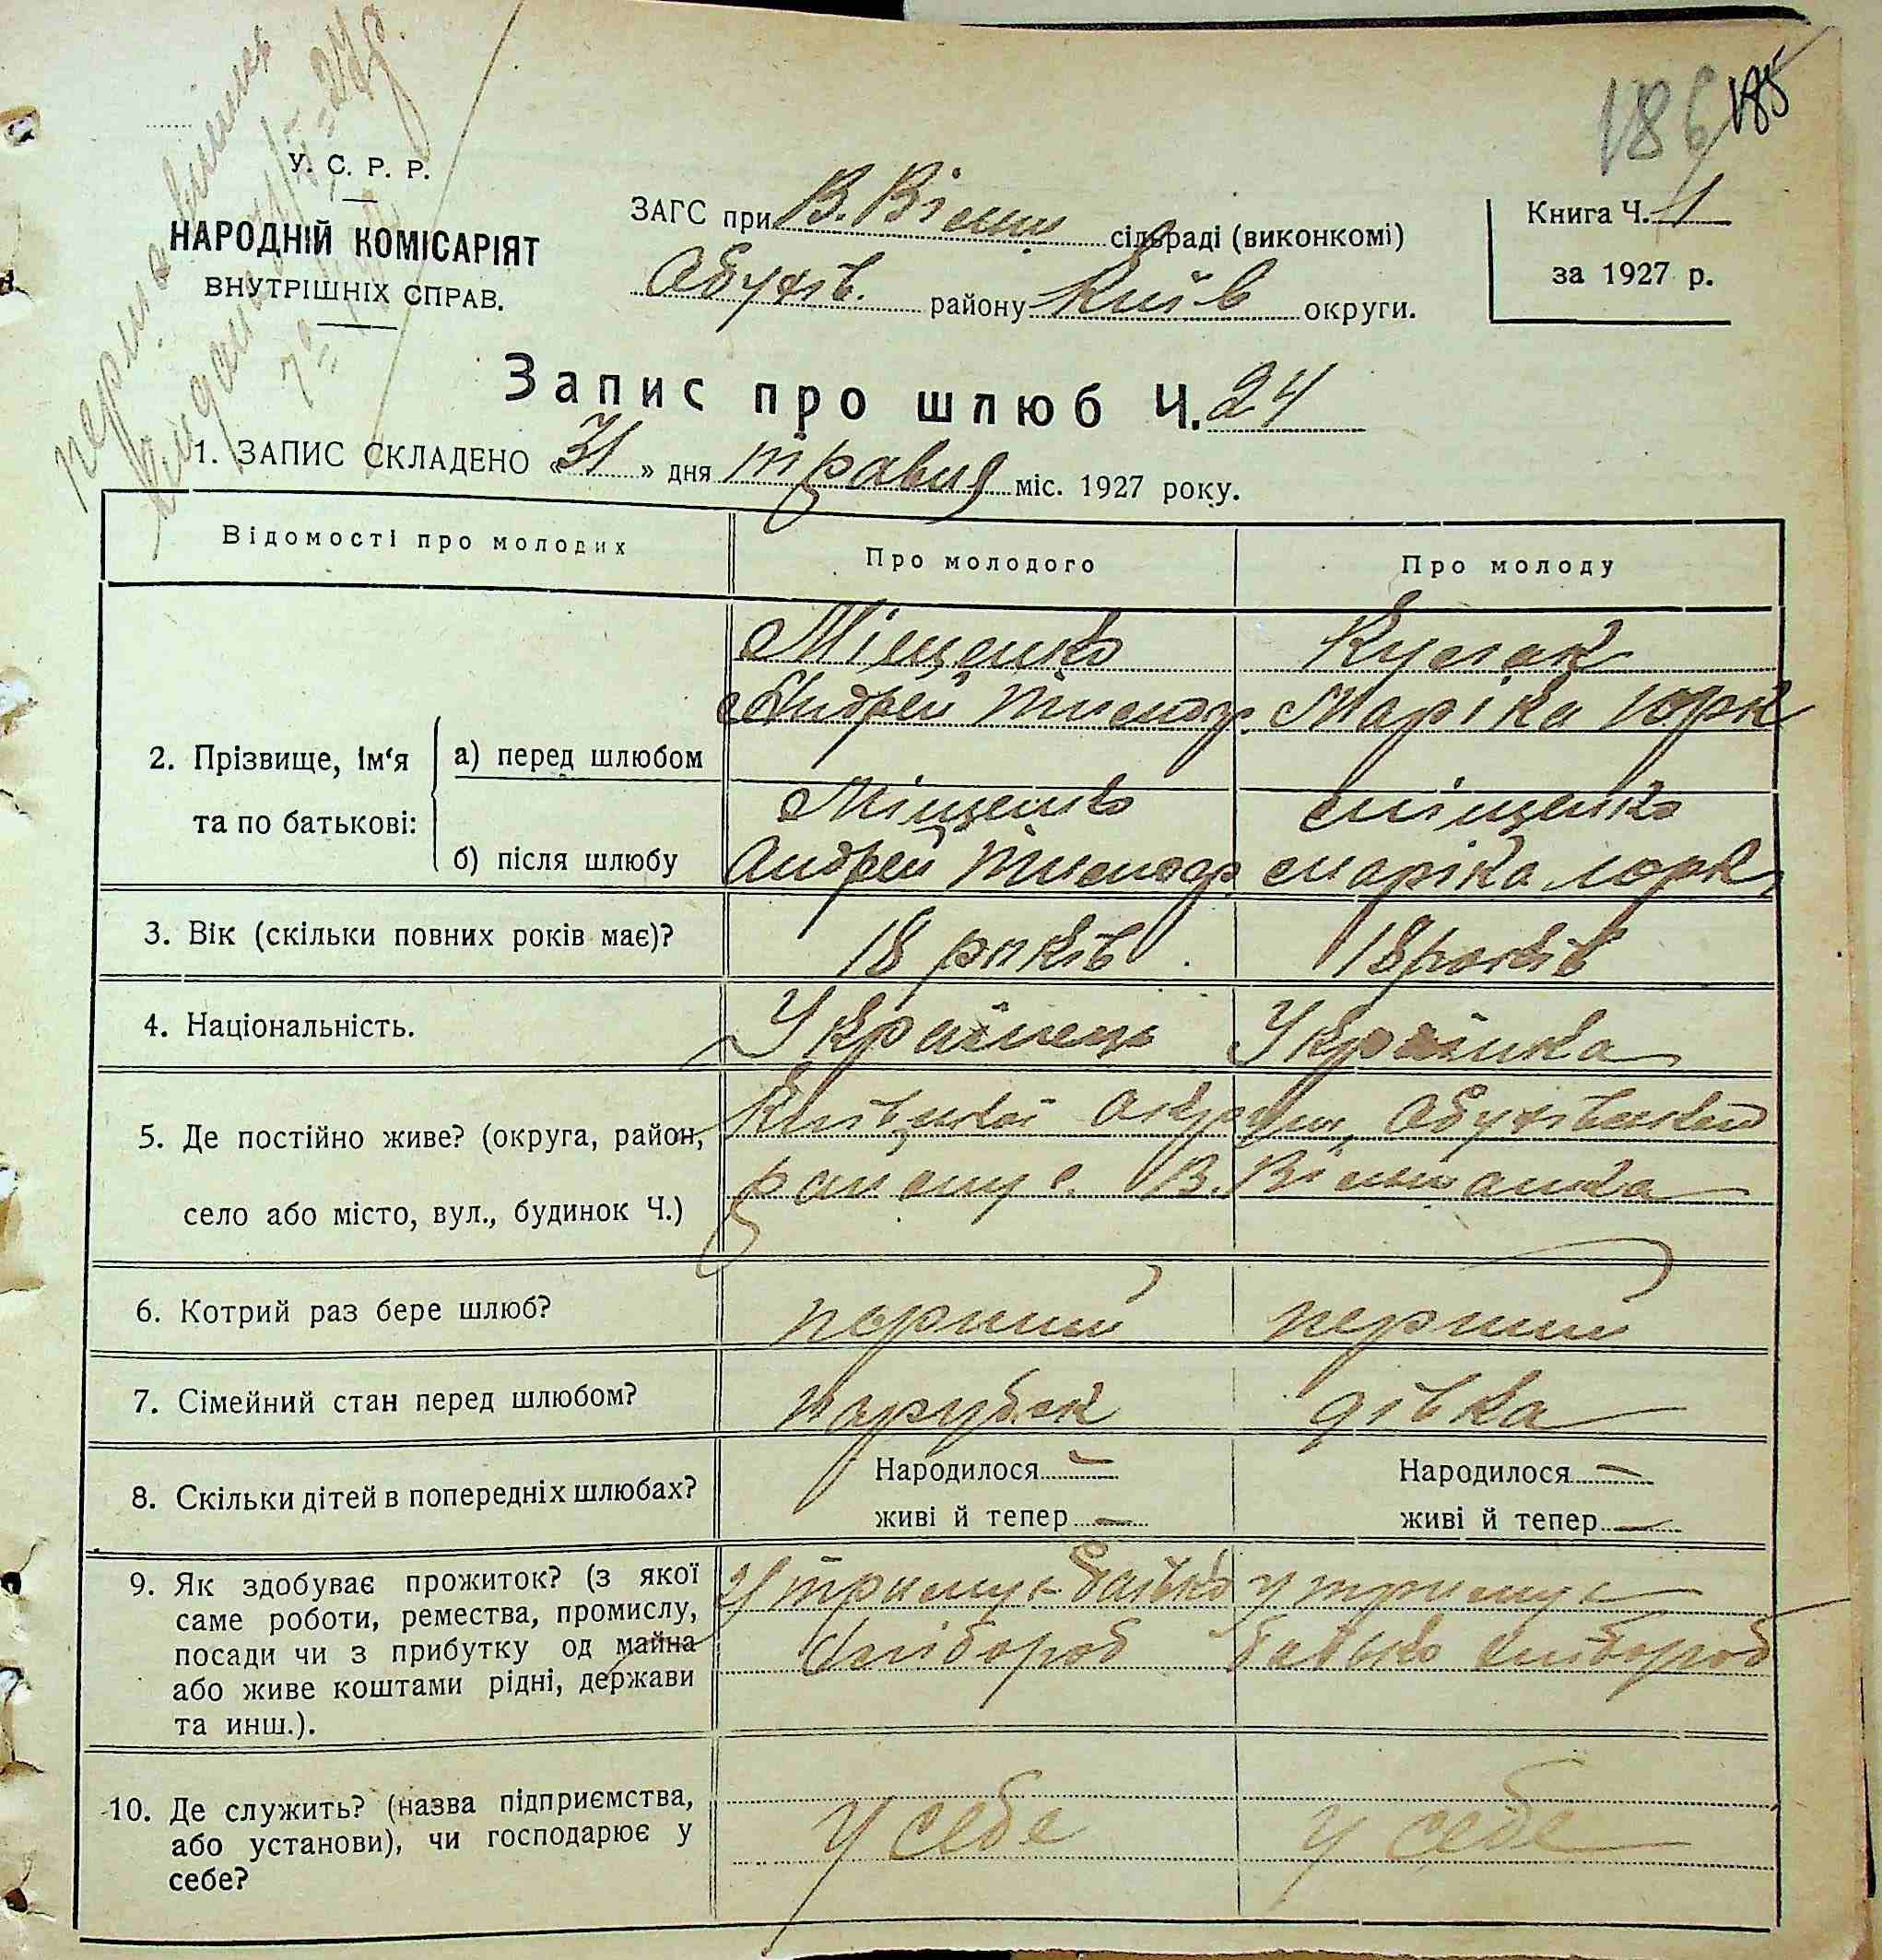 186 185
У. С. Р. Р.
НАРОДНІЙ КОМІСАРІЯТ
ВНУТРІШНІХ СПРАВ.
ЗАГС при В. Вільш сільраді (виконкомі)
Обухів. району Київ округи.
Книга Ч. 1
за 1927 р.
Запис про шлюб Ч. 24
1. ЗАПИС СКЛАДЕНО «31» дня травня міс. 1927 року.
Відомості про молодих
Про молодого
Про молоду
2. Прізвище, ім‘я та по батькові:
а) перед шлюбом
Міщенко
Андрей
Маріка Юрк
б) після шлюбу
Міщенко
Андрей
Міщенко
Маріка Юрк.
3. Вік (скільки повних років має)?
18 років
18 років
4. Національність.
Українець
Українка
5. Де постійно живе? (округа, район,
село або місто, вул., будинок Ч.)
Київської округи, Обухівського
району с. В. Вільшанка
6. Котрий раз бере шлюб?
перший
перший
7. Сімейний стан перед шлюбом?
парубок
дівка
8. Скільки дітей в попередніх шлюбах?
Народилося —
живі й тепер —
Народилося —
живі й тепер —
9. Як здобуває прожиток? (з якої
саме роботи, ремества, промислу,
посади чи з прибутку од майна
або живе коштами рідні, держави
та инш.).
утримує батько
хлібороб
утримує
батько хлібороб
10. Де служить? (назва підприємства,
або установи), чи господарює у
себе?
у себе
у себе